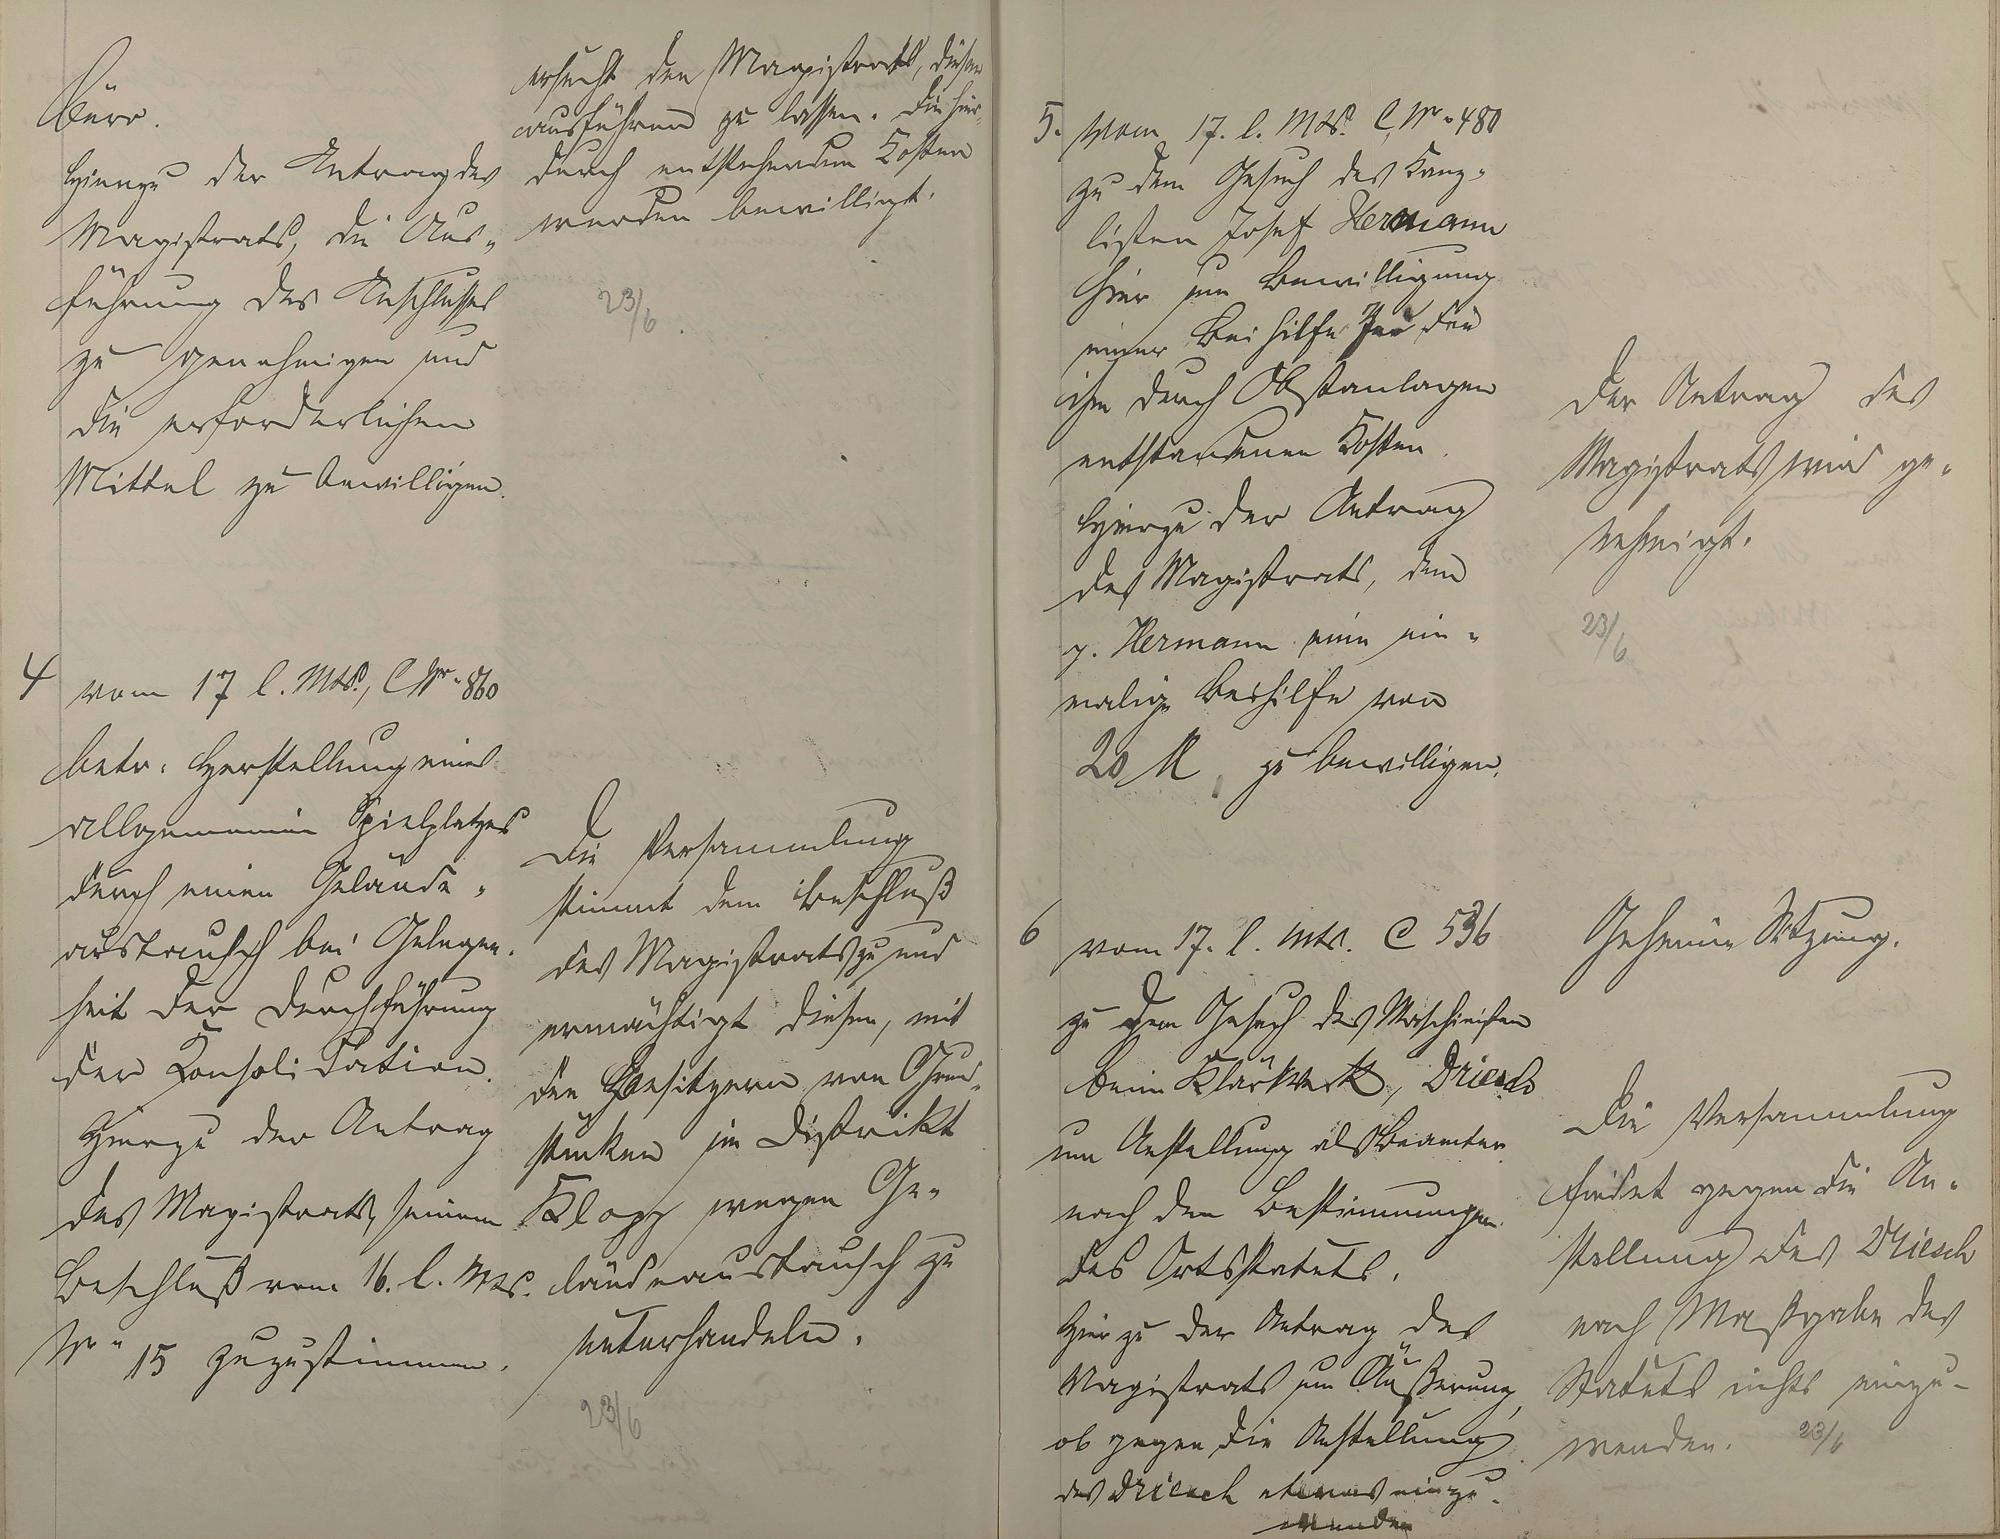 büro.
Hierzu der Antrag des
Magistrats, die Aus-
führung des Anschlusses
zu genehmigen und
die erforderlichen
Mittel zu bewilligen.
ersucht den Magistrat, diesen
ausführen zu lassen. Die hier-
durch entstehenden Kosten
werden bewilligt.
23/6.
4 vom 17 l. Mts., C Nr. 860
betr. Herstellung eines
allgemeinen Spielplatzes
durch einen Gelände-
austausch bei Gelegen-
heit der Durchführung
der Konsolidation.
Hierzu der Antrag
des Magistrats, seinem
Beschluß vom 16. l. Mts.
Nr. 15 zuzustimmen.
Die Versammlung
stimmt dem Beschluß
des Magistrats zu und
ermächtigt diesen, mit
den Besitzern von Grund-
stücken im Distrikt
Klopp wegen Ge-
ländeaustausch zu
unterhandeln.
23/6
5. vom 17. l. Mts. C, Nr. 480
zu dem Gesuch des Kanz-
listen Josef Hermann
hier um Bewilligung
einer Beihilfe zu die
ihm durch Obstanlagen
entstandenen Kosten.
Hierzu der Antrag
des Magistrats, dem
p. Hermann eine ein-
malige Beihilfe von
20 M zu bewilligen.
Der Antrag des
Magistrats wird ge-
nehmigt.
23/6
6 vom 17. l. Mts. C 536
zu dem Gesuch des Maschinisten
beim Klärwerk, Driesch
um Anstellung als Beamter
nach den Bestimmungen
des Ortsstatuts.
Hierzu der Antrag des
Magistrats um Äußerung,
ob gegen die Anstellung
des Driesch etwas einzu-
wenden
Geheime Sitzung.
Die Versammlung
findet gegen die An-
stellung des Driesch
nach Maßgabe des
Statuts nichts einzu-
wenden. 23/6